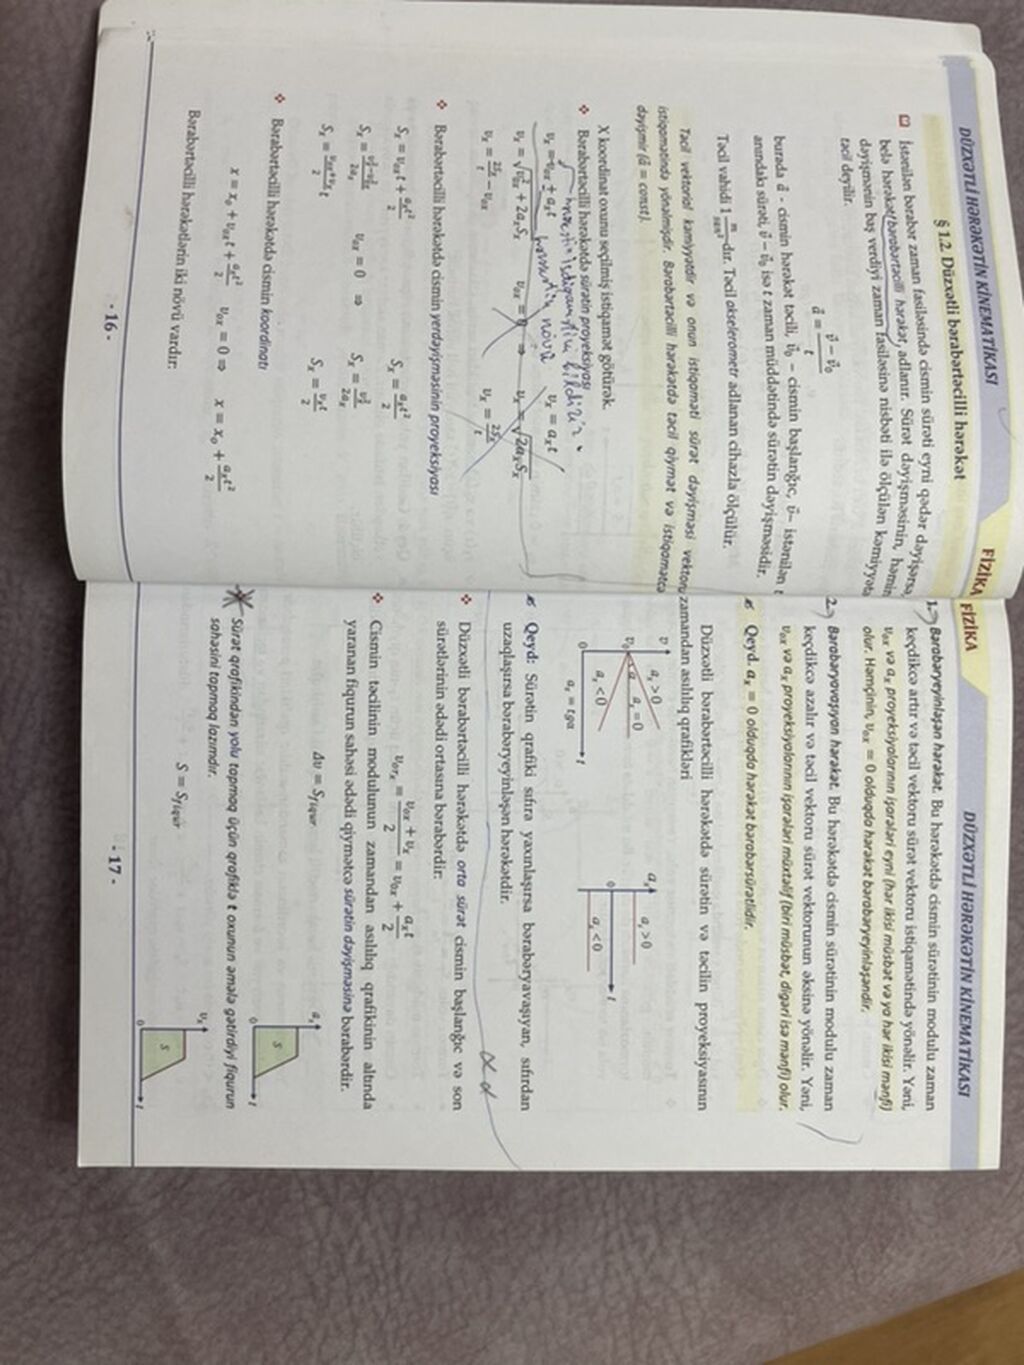 DÜZXƏTLİ HƏRƏKƏTİN KİNEMATİKASI
FİZİKA
§ 1.2. Düzxətli bərabərtəcilli hərəkət
İstənilən bərabər zaman fasiləsində cismin sürəti eyni qədər dəyişərsə
belə hərəkət bərabərtəcilli hərəkət, adlanır. Sürət dəyişməsinin, həmin
dəyişmənin baş verdiyi zaman fasiləsinə nisbəti ilə ölçülən kəmiyyətə
təcil deyilir.
a⃗ = (v⃗ − v⃗₀)/t
burada a⃗ - cismin hərəkət təcili, v⃗₀ – cismin başlanğıc, v⃗– istənilən t
anındakı sürəti, v⃗ – v⃗₀ isə t zaman müddətində sürətin dəyişməsidir.
Təcil vahidi 1 m/san² -dır. Təcil akselerometr adlanan cihazla ölçülür.
Təcil vektorial kəmiyyətdir və onun istiqaməti sürət dəyişməsi vektoru
istiqamətində yönəlmişdir. Bərabərtəcilli hərəkətdə təcil qiymət və istiqamətcə
dəyişmir (a⃗ = const).
X koordinat oxunu seçilmiş istiqamət götürək.
❖ Bərabərtəcilli hərəkətdə sürətin proyeksiyası
vₓ = v₀ₓ ± aₓt vₓ = aₓt
hərəkətin istiqamətini bildirir.
hərəkətin növü
vₓ = √(v₀ₓ² + 2aₓSₓ) v₀ₓ = 0 ⇒ vₓ = √(2aₓSₓ)
vₓ = 2Sₓ/t − v₀ₓ vₓ = 2Sₓ/t
❖ Bərabərtəcilli hərəkətdə cismin yerdəyişməsinin proyeksiyası
Sₓ = v₀ₓt + aₓt²/2 Sₓ = aₓt²/2
Sₓ = (vₓ²−v₀ₓ²)/2aₓ v₀ₓ = 0 ⇒ Sₓ = vₓ²/2aₓ
Sₓ = (v₀ₓ+vₓ)/2 t Sₓ = vₓt/2
❖ Bərabərtəcilli hərəkətdə cismin koordinatı
x = x₀ + v₀ₓt + aₓt²/2 v₀ₓ = 0 ⇒ x = x₀ + aₓt²/2
Bərabərtəcilli hərəkətlərin iki növü vardır:
- 16 -
FİZİKA
DÜZXƏTLİ HƏRƏKƏTİN KİNEMATİKASI
1. Bərabəryeyinləşən hərəkət. Bu hərəkətdə cismin sürətinin modulu zaman
keçdikcə artır və təcil vektoru sürət vektoru istiqamətində yönəlir. Yəni,
v₀ₓ və aₓ proyeksiyalarının işarələri eyni (hər ikisi müsbət və ya hər ikisi mənfi)
olur. Həmçinin, v₀ₓ = 0 olduqda hərəkət bərabəryeyinləşəndir.
2. Bərabəryavaşıyan hərəkət. Bu hərəkətdə cismin sürətinin modulu zaman
keçdikcə azalır və təcil vektoru sürət vektorunun əksinə yönəlir. Yəni,
v₀ₓ və aₓ proyeksiyalarının işarələri müxtəlif (biri müsbət, digəri isə mənfi) olur.
✍ Qeyd. aₓ = 0 olduqda hərəkət bərabərsürətlidir.
Düzxətli bərabərtəcilli hərəkətdə sürətin və təcilin proyeksiyasının
zamandan asılılıq qrafikləri
v aₓ>0 aₓ=0 aₓ<0 v₀ α 0 t
aₓ = tgα
aₓ aₓ>0 aₓ<0 0 t
✍ Qeyd: Sürətin qrafiki sıfıra yaxınlaşırsa bərabəryavaşıyan, sıfırdan
uzaqlaşırsa bərabəryeyinləşən hərəkətdir.
❖ Düzxətli bərabərtəcilli hərəkətdə orta sürət cismin başlanğıc və son
sürətlərinin ədədi ortasına bərabərdir:
v_orₓ = (v₀ₓ + vₓ)/2 = v₀ₓ + aₓt/2
❖ Cismin təcilinin modulunun zamandan asılılıq qrafikinin altında
yaranan fiqurun sahəsi ədədi qiymətcə sürətin dəyişməsinə bərabərdir.
Δυ = S_fiqur
aₓ S 0 t
Sürət qrafikindən yolu tapmaq üçün qrafiklə t oxunun əmələ gətirdiyi fiqurun
sahəsini tapmaq lazımdır.
S = S_fiqur
vₓ S 0 t
- 17 -